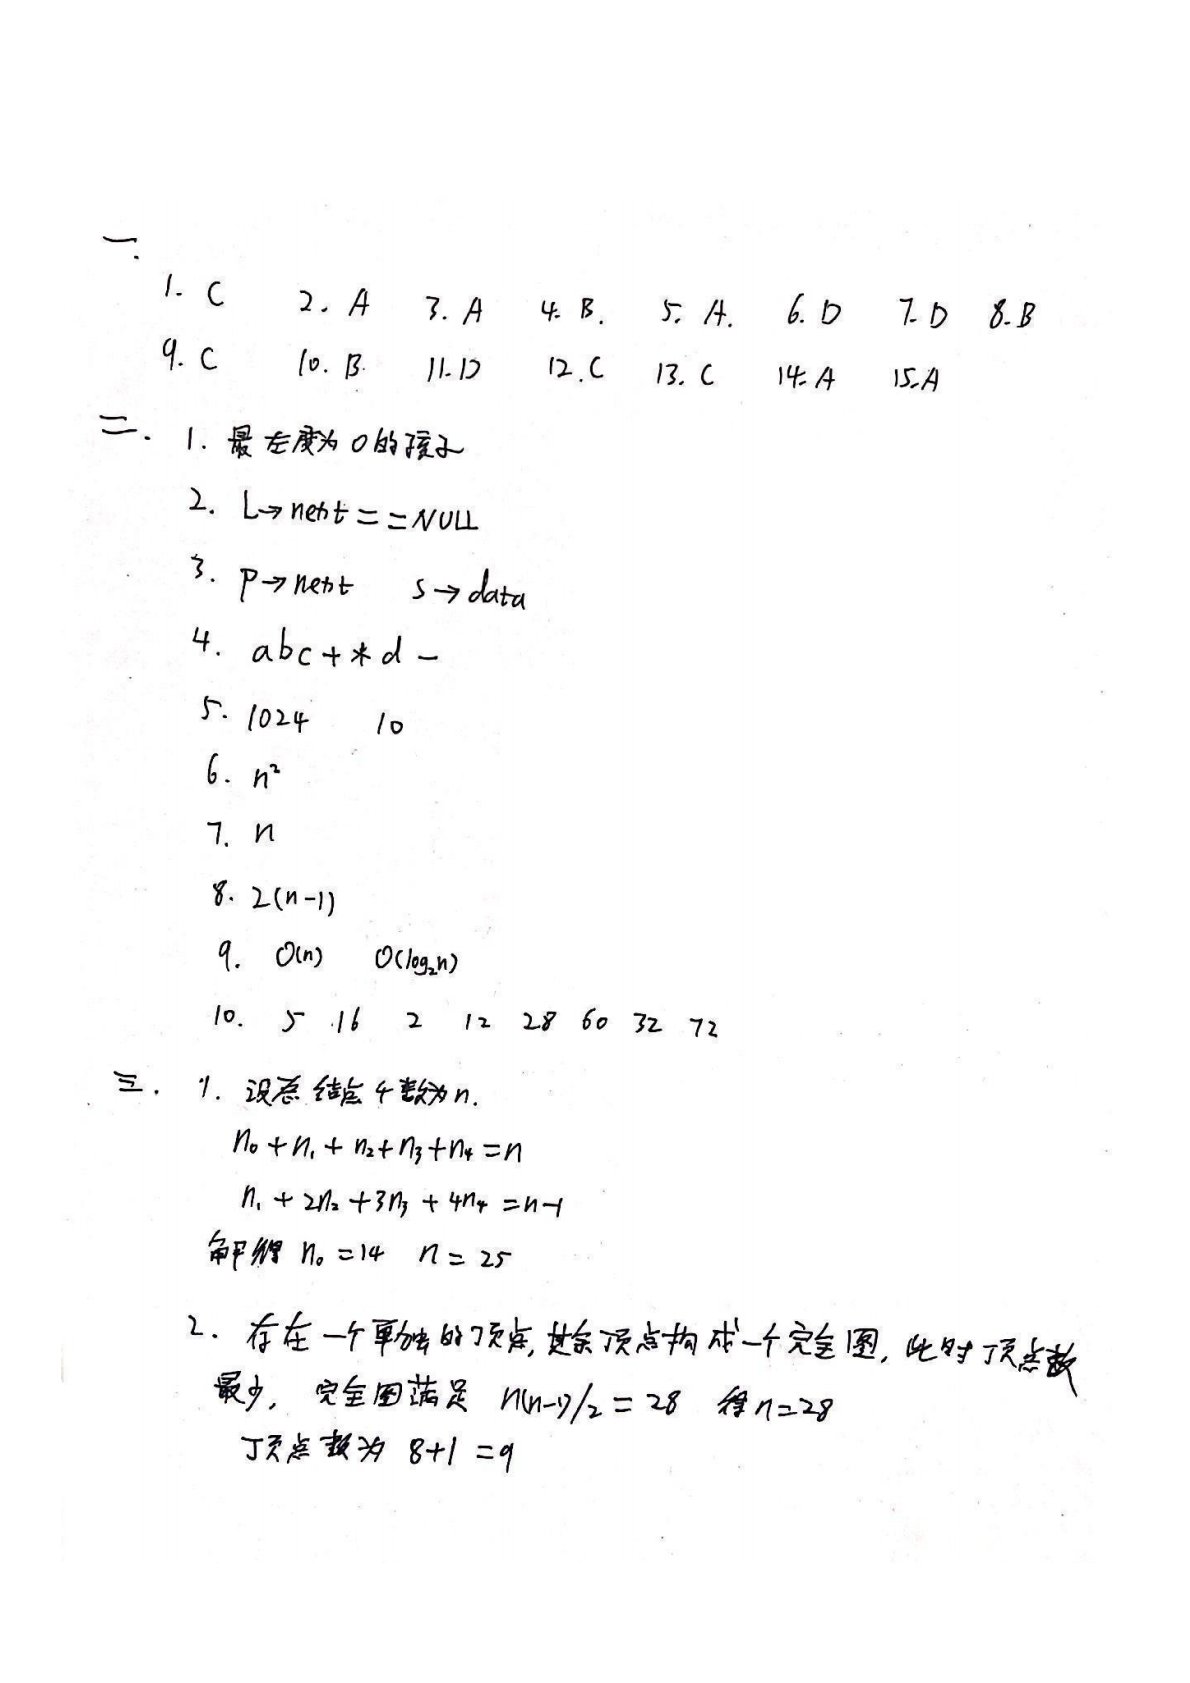 一.
1. C 2. A 3. A 4. B. 5. A. 6. D 7. D 8. B
9. C 10. B 11. D 12. C 13. C 14. A 15. A
二. 1. 最左度为0的孩子
2. L→next==NULL
3. p→next s→data
4. abc+*d-
5. 1024 10
6. n²
7. n
8. 2(n-1)
9. O(n) O(log₂n)
10. 5 16 2 12 28 60 32 72
三. 1. 设总结点个数为n.
n₀+n₁+n₂+n₃+n₄=n
n₁+2n₂+3n₃+4n₄=n-1
解得 n₀=14 n=25
2. 存在一个单独的顶点,其余顶点构成一个完全图,此时顶点数
最少, 完全图满足 n(n-1)/2=28 得n=28
顶点数为 8+1=9